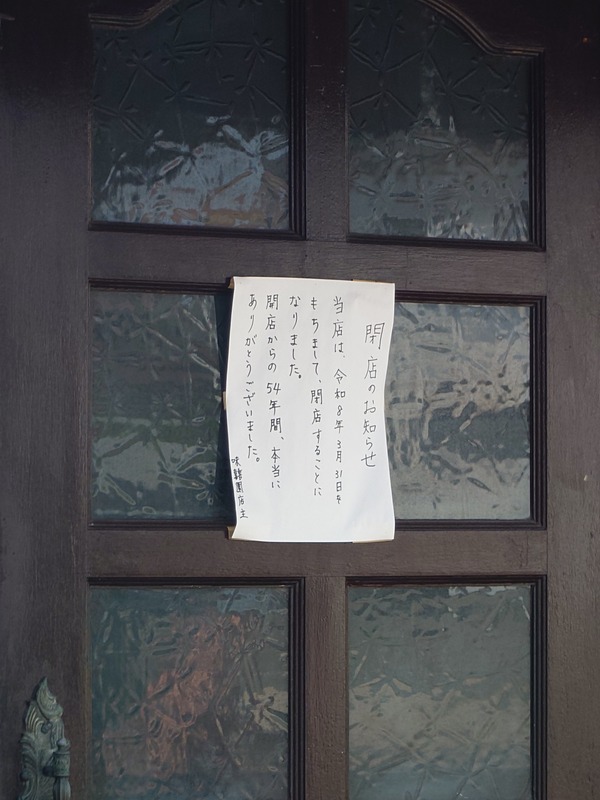 閉店のお知らせ
当店は、令和8年3月31日を
もちまして、閉店することに
なりました。
開店からの54年間、本当に
ありがとうございました。
店主